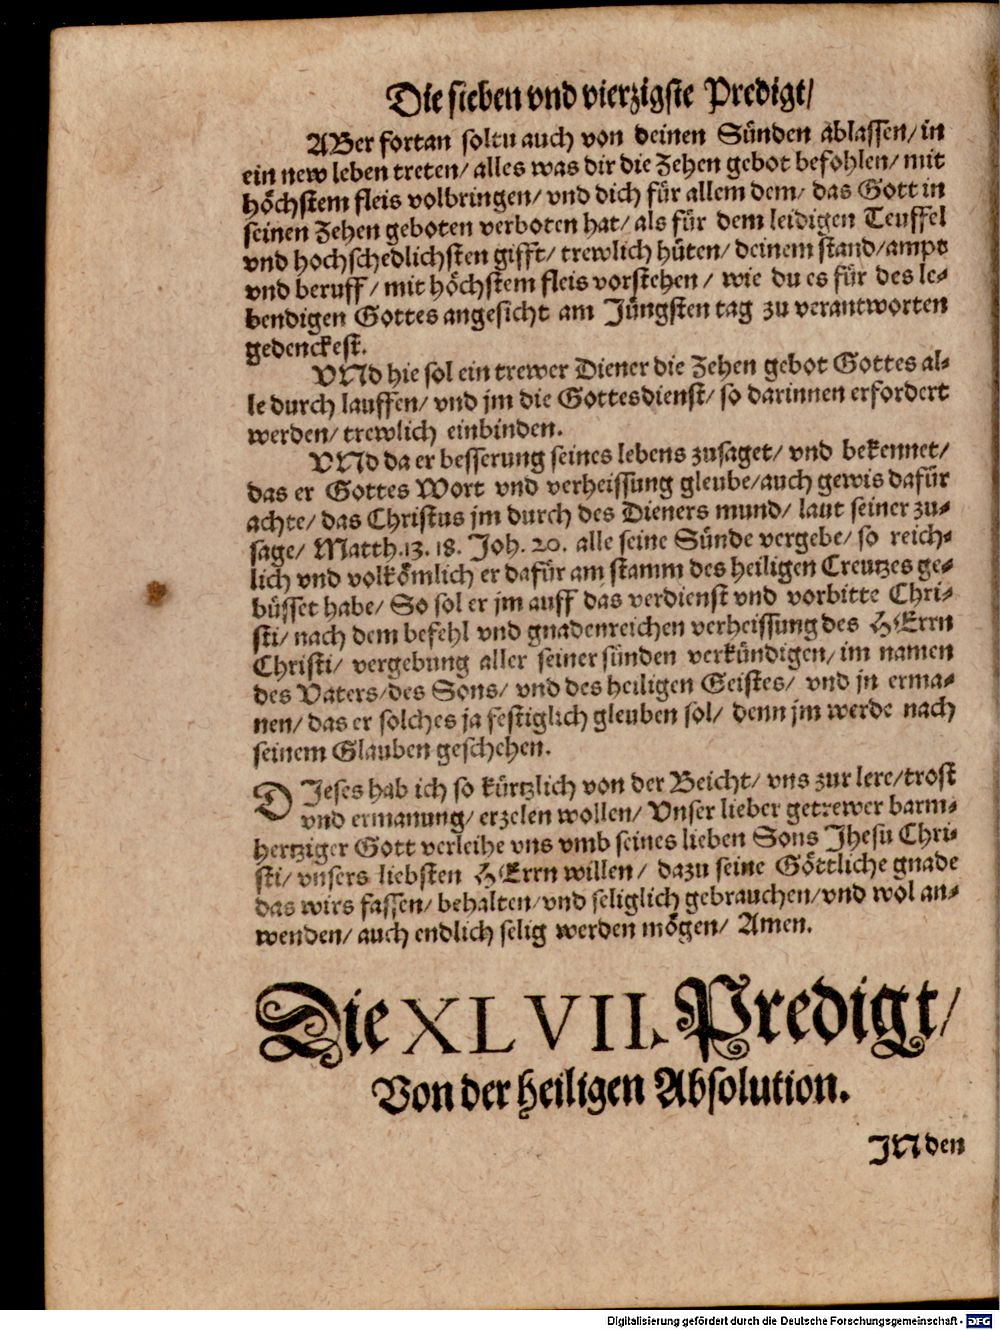 Die sieben vnd vierzigste Predigt/
ABer fortan soltu auch von deinen Sünden ablassen/ in
ein new leben treten/ alles was dir die Zehen gebot befohlen/ mit
höchstem fleis volbringen/ vnd dich für allem dem/ das Gott in
seinen Zehen geboten verboten hat/ als für dem leidigen Teuffel
vnd hochschedlichsten gifft/ trewlich hüten/ deinem stand/ ampt
vnd beruff/ mit höchstem fleis vorstehen/ wie du es für des le-
bendigen Gottes angesicht am Jüngsten tag zu verantworten
gedenckest.
VNd hie sol ein trewer Diener die Zehen gebot Gottes al-
le durch lauffen/ vnd jm die Gottesdienst/ so darinnen erfordert
werden/ trewlich einbinden.
VNd da er besserung seines lebens zusaget/ vnd bekennet/
das er Gottes Wort vnd verheissung gleube/ auch gewis dafür
achte/ das Christus jm durch des Dieners mund/ laut seiner zu-
sage/ Matth. 13. 18. Joh. 20. alle seine Sünde vergebe/ so reich-
lich vnd volkömlich er dafür am stamm des heiligen Creutzes ge-
büsset habe/ So sol er jm auff das verdienst vnd vorbitte Chri-
sti/ nach dem befehl vnd gnadenreichen verheissung des HErrn
Christi/ vergebung aller seiner sünden verkündigen/ im namen
des Vaters/ des Sons/ vnd des heiligen Geistes/ vnd jn erma-
nen/ das er solches ja festiglich gleuben sol/ denn jm werde nach
seinem Glauben geschehen.
DJeses hab ich so kürtzlich von der Beicht/ vns zur lere/ trost
vnd ermanung/ erzelen wollen/ Vnser lieber getrewer barm-
hertziger Gott verleihe vns vmb seines lieben Sons Jhesu Chri-
sti/ vnsers liebsten HErrn willen/ dazu seine Göttliche gnade
das wirs fassen/ behalten/ vnd seliglich gebrauchen/ vnd wol an-
wenden/ auch endlich selig werden mögen/ Amen.
Die XLVII. Predigt/
Von der heiligen Absolution.
JN den
Digitalisierung gefördert durch die Deutsche Forschungsgemeinschaft - DFG